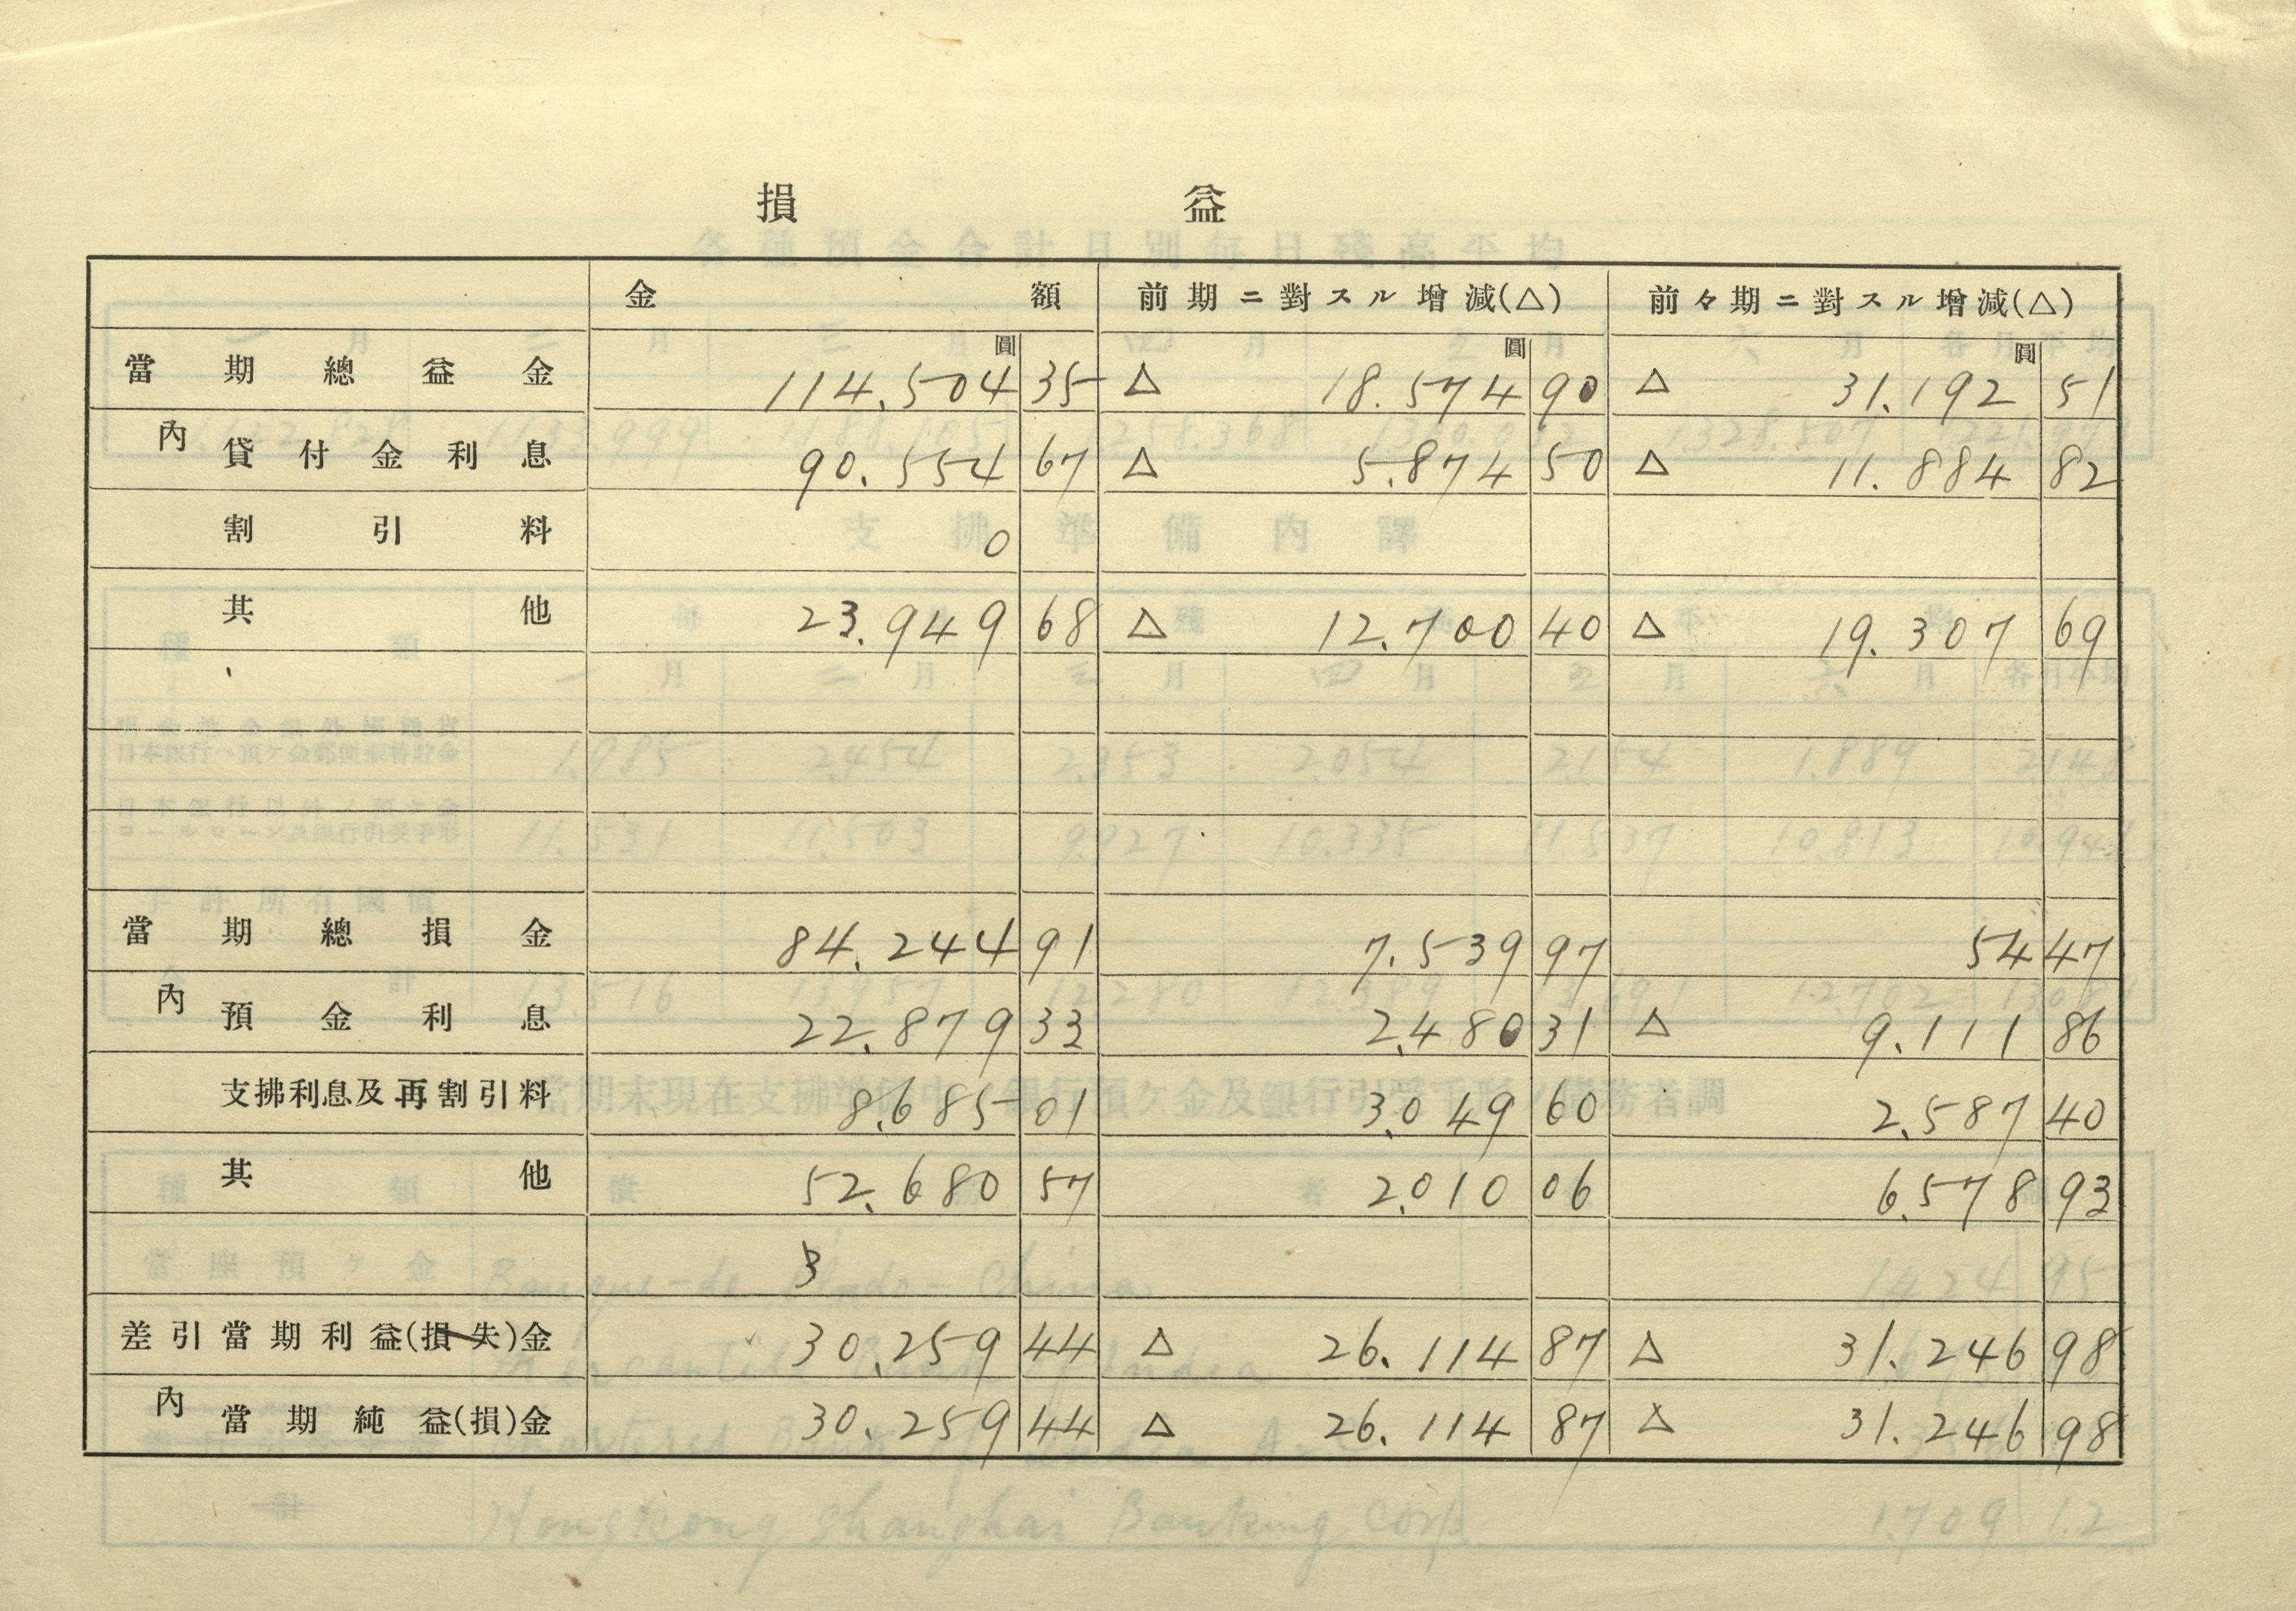 損益
金額 前期ニ對スル增減(△) 前々期ニ對スル增減(△)
圓 圓 圓
當期總益金 114.504 35 △ 18.574 90 △ 31.192 51
內 貸付金利息 90.554 67 △ 5.874 50 △ 11.884 82
割引料 0
其他 23.949 68 △ 12.700 40 △ 19.307 69
當期總損金 84.244 91 7.539 97 54 47
內 預金利息 22.879 33 2.480 31 △ 9.111 86
支拂利息及再割引料 8.685 01 3.049 60 2.587 40
其他 52.680 57 2.010 06 6.578 93
3
差引當期利益(損失)金 30.259 44 △ 26.114 87 △ 31.246 98
內 當期純益(損)金 30.259 44 △ 26.114 87 △ 31.246 98